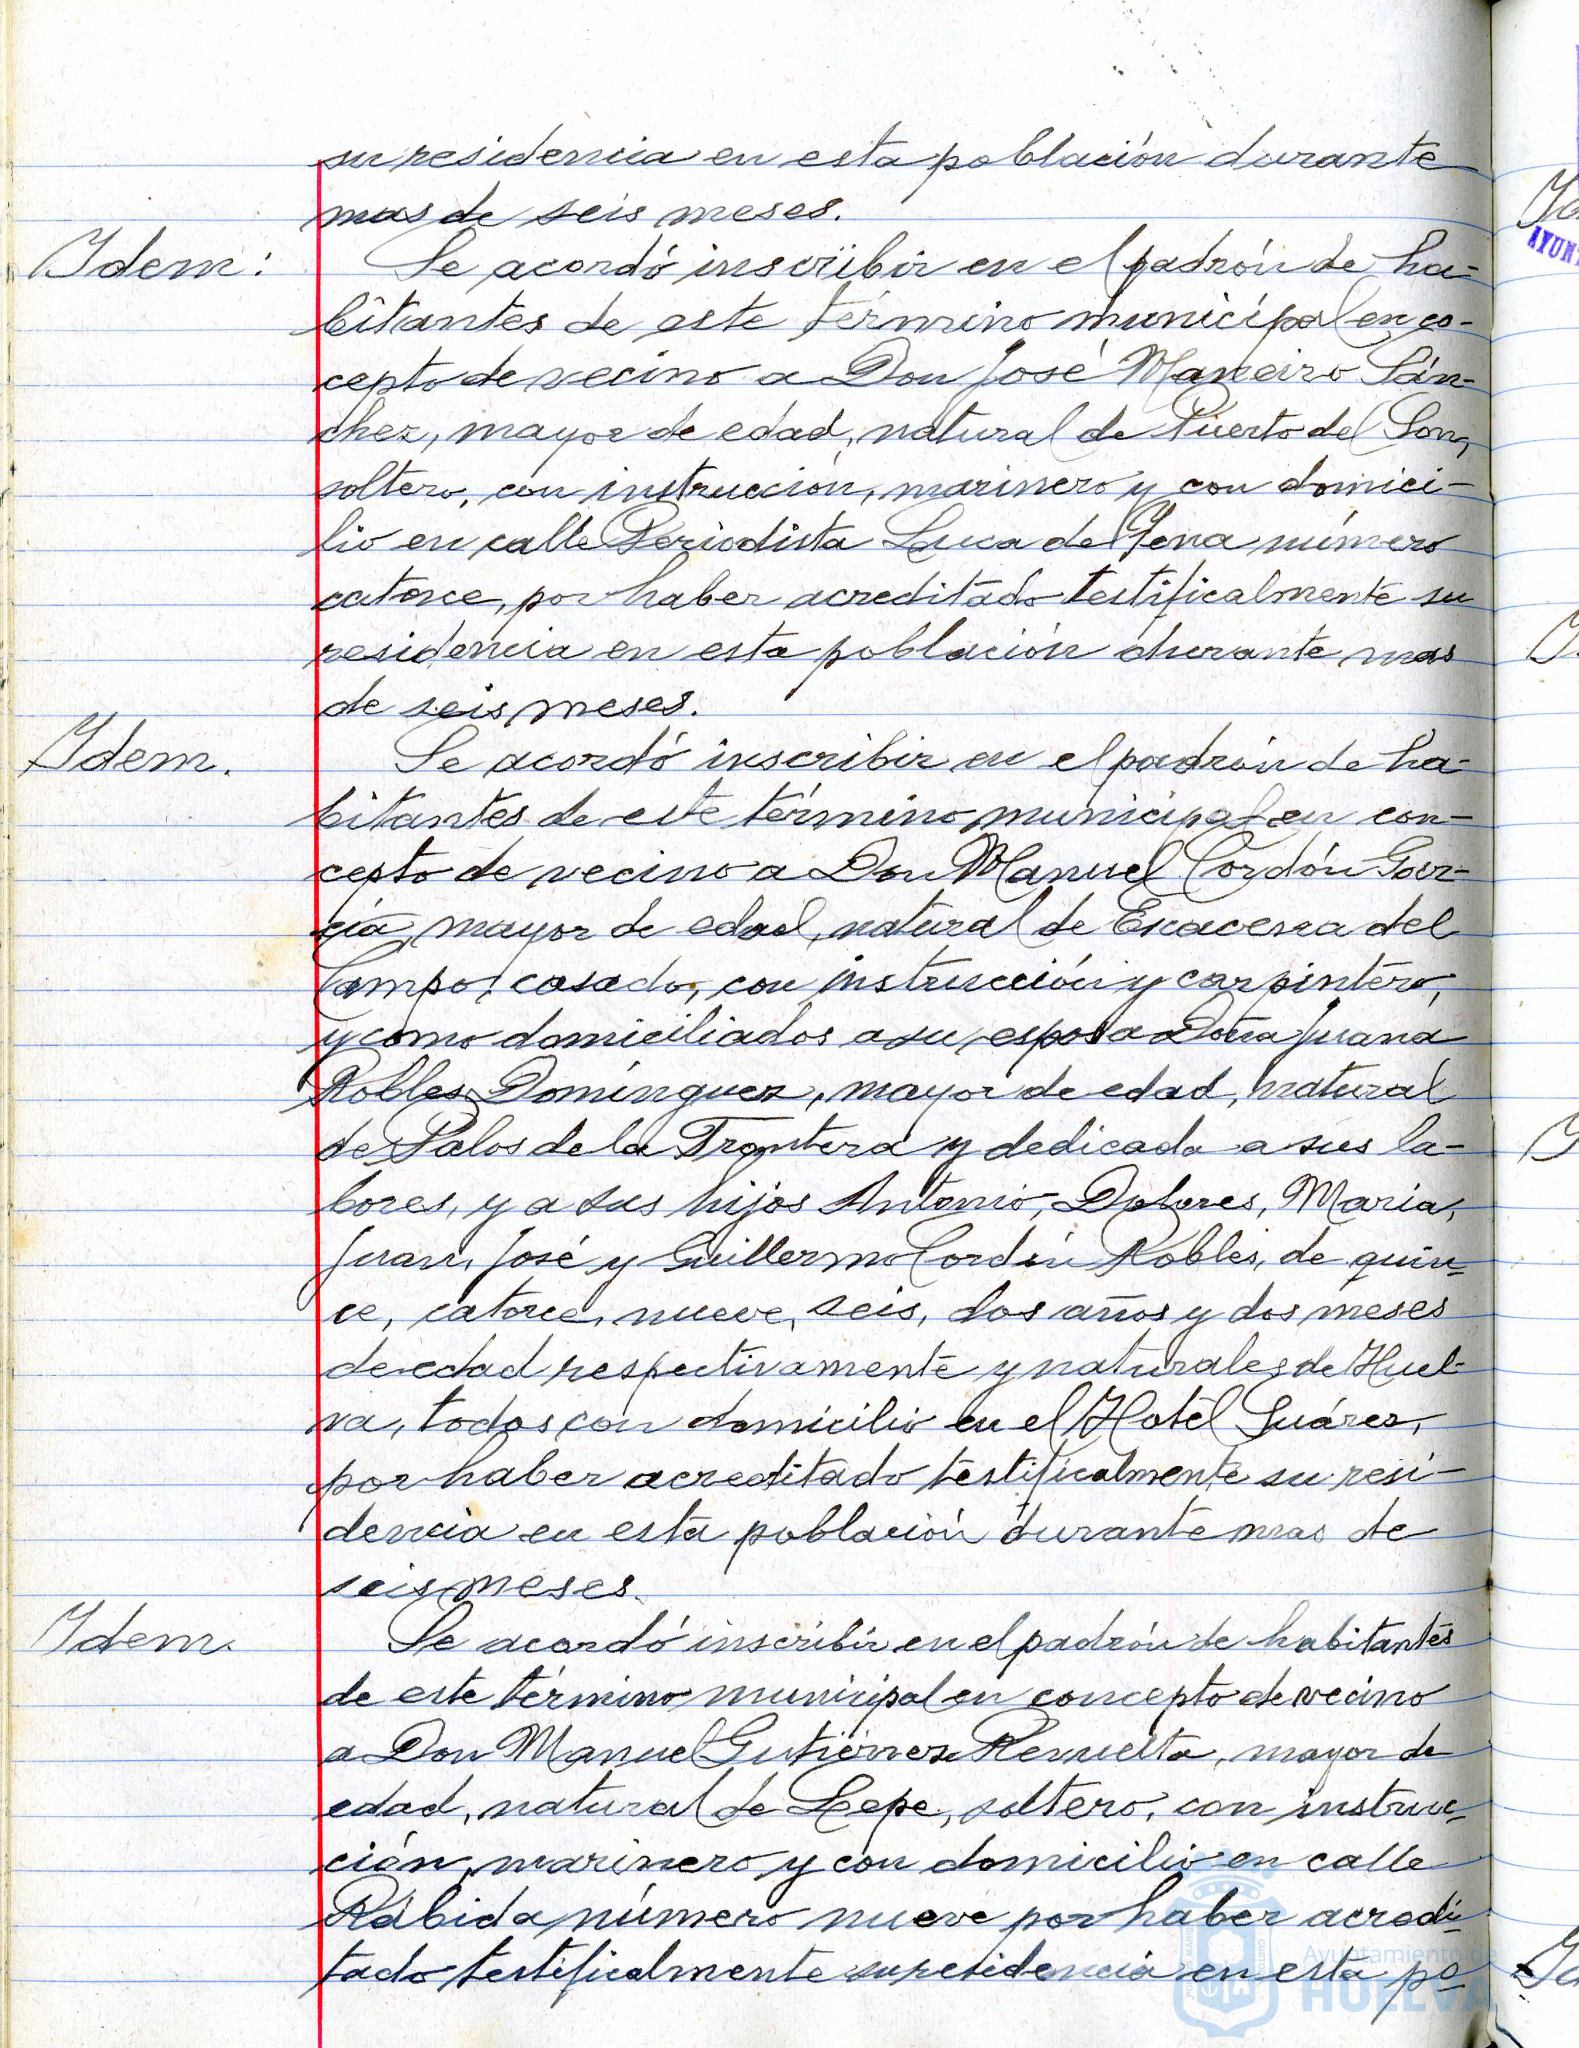 su residencia en esta población durante
mas de seis meses.
Idem:
Se acordó inscribir en el padrón de ha-
bitantes de este término municipal en co-
cepto de vecino a Don José Maneiro Sán-
chez, mayor de edad, natural de Puerto del Son,
soltero, con instrucción, marinero y con domici-
lio en calle Periodista Luca de Tena número
catorce, por haber acreditado testificalmente su
residencia en esta población durante mas
de seis meses.
Idem.
Se acordó inscribir en el padrón de ha-
bitantes de este término municipal en con-
cepto de vecino a Don Manuel Cordón Gar-
cía, mayor de edad, natural de Escacena del
Campo, casado, con instrucción y carpintero,
y como domiciliados a su esposa Doña Juana
Robles Domínguez, mayor de edad, natural
de Palos de la Frontera y dedicada a sus la-
bores, y a sus hijos Antonio, Dolores, María,
Juan, José y Guillermo Cordón Robles, de quin-
ce, catorce, nueve, seis, dos años y dos meses
de edad respectivamente y naturales de Huel-
va, todos con domicilio en el Hotel Suárez,
por haber acreditado testificalmente su resi-
dencia en esta población durante mas de
seis meses.
Idem.
Se acordó inscribir en el padrón de habitantes
de este término municipal en concepto de vecino
a Don Manuel Gutiérrez Revuelta, mayor de
edad, natural de Lepe, soltero, con instruc-
ción, marinero y con domicilio en calle
Rábida número nueve por haber acredi-
tado testificalmente su residencia en esta po-
Ayuntamiento de
HUELVA